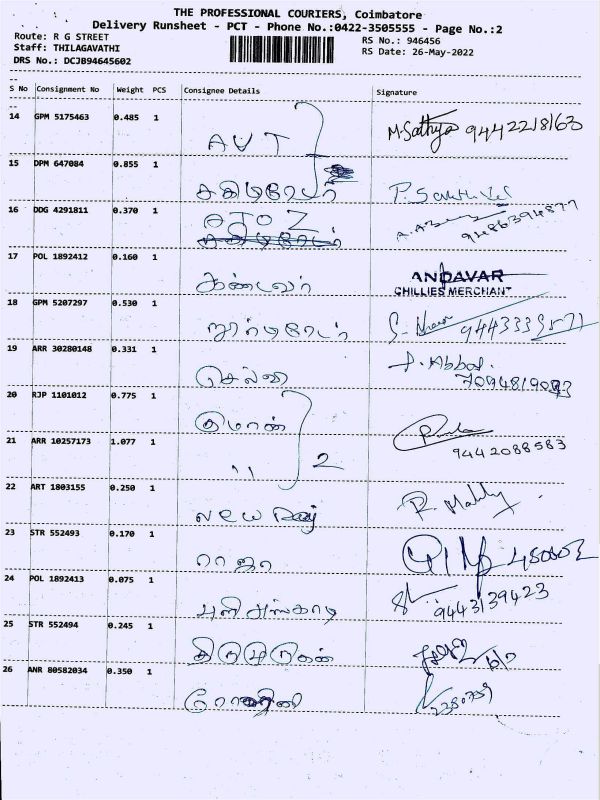 THE PROFESSIONAL COURIERS, Coimbatore
Delivery Runsheet - PCT - Phone No.:0422-3505555 - Page No.:2
Route: R G STREET
RS No.: 946456
Staff: THILAGAVATHI
RS Date: 26-May-2022
DRS No.: DCJB94645602
S No Consignment No Weight PCS Consignee Details Signature
14 GPM 5175463 0.485 1 AVT M.Sathya 9442218163
15 DPM 647084 0.855 1 P. Sakthivel
16 DDG 4291811 0.370 1 A TO Z 9486394877
17 POL 1892412 0.160 1 ANDAVAR
CHILLIES MERCHANT
18 GPM 5207297 0.530 1
19 ARR 30280148 0.331 1 செல்வி Abbas.
20 RJP 1101012 0.775 1 இமான்
21 ARR 10257173 1.077 1 " 2 9442088583
22 ART 1803155 0.250 1 New
23 STR 552493 0.170 1 ராஜா
24 POL 1892413 0.075 1 9443139423
25 STR 552494 0.245 1 திருமுருகன்
26 ANR 80582034 0.350 1